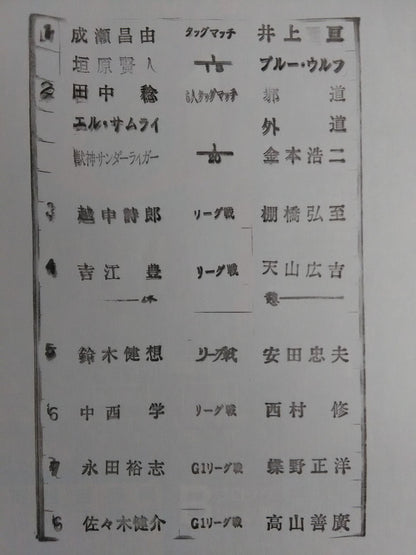 1 成瀬昌由 タッグマッチ 井上亘
垣原賢人 1/15 ブルー・ウルフ
2 田中稔 6人タッグマッチ 邪道
エル・サムライ 外道
獣神サンダーライガー 1/20 金本浩二
3 越中詩郎 リーグ戦 棚橋弘至
4 吉江豊 リーグ戦 天山広吉
休 憩
5 鈴木健想 リーグ戦 安田忠夫
6 中西学 リーグ戦 西村修
7 永田裕志 G1リーグ戦 蝶野正洋
8 佐々木健介 G1リーグ戦 高山善廣